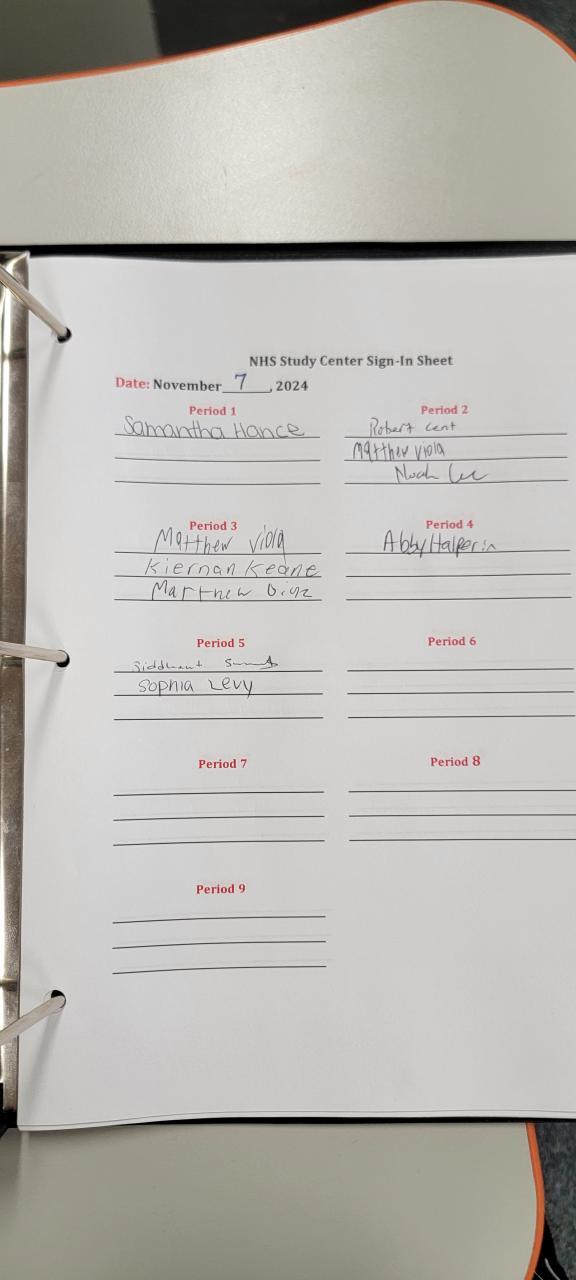 NHS Study Center Sign-In Sheet
Date: November 7, 2024
Period 1
Samantha Hance
Period 2
Robert Cent
Matthew Viola
Noah Lee
Period 3
Matthew Viola
Kiernan Keane
Matthew
Period 4
Abby Halperin
Period 5
Siddhant
Sophia Levy
Period 6
Period 7
Period 8
Period 9